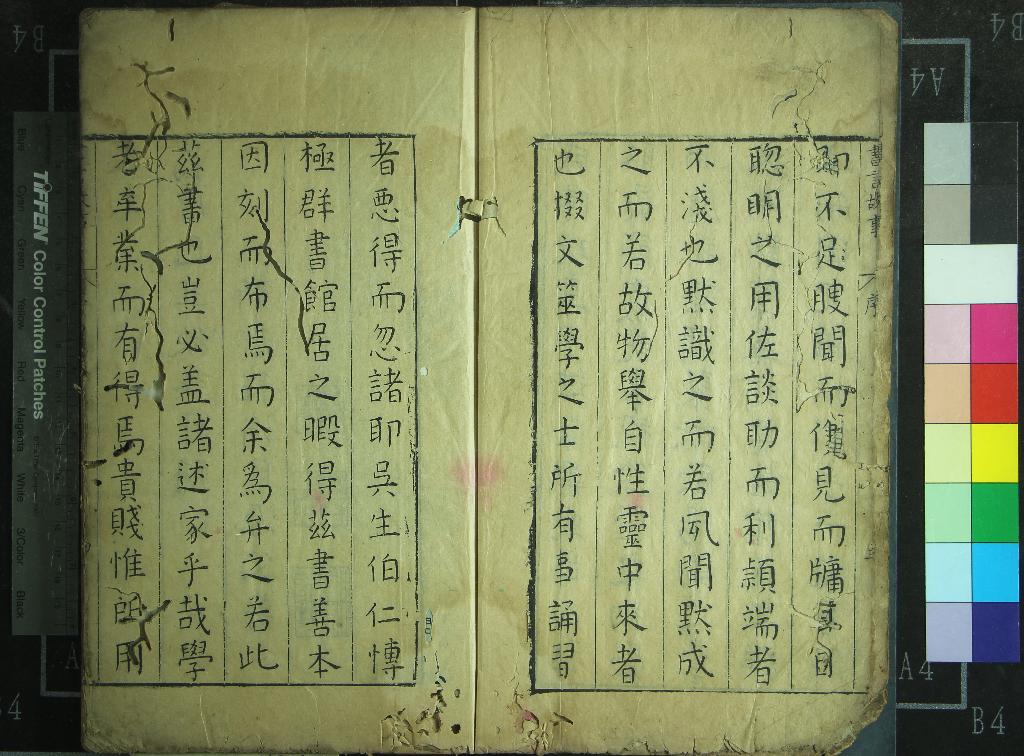 書言故事
序
不足膄聞而儳見而牗其自
聦明之用佐談助而利頴端者
不淺也黙識之而若夙聞黙成
之而若故物舉自性靈中來者
也掇文筮學之士所有事誦習
者惡得而忽諸耶吳生伯仁慱
極群書館居之暇得茲書善本
因刻而布焉而余為弁之若此
茲書也豈必盖諸述家乎哉學
者卒業而有得焉貴賤惟所用
TIFFEN Color Control Patches
Blue
Cyan
Green
Yellow
Red
Magenta
White
3/Color
Black
A4
A4
B4
B4